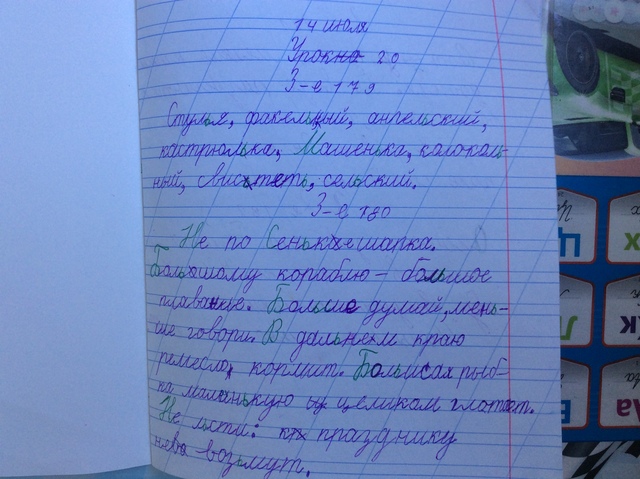 14 июля
Урок 20
З-е 179
Стулья, факельный, ангельский,
кастрюлька, Машенька, колоколь-
ный, свистеть, сельский.
З-е 180
Не по Сеньке шапка.
Большому кораблю — большое
плаванье. Больше думай, мень-
ше говори. В дальнем краю
ремесло кормит. Большая рыб-
ка маленькую целиком глотает.
Не льсти: к празднику
возьмут.